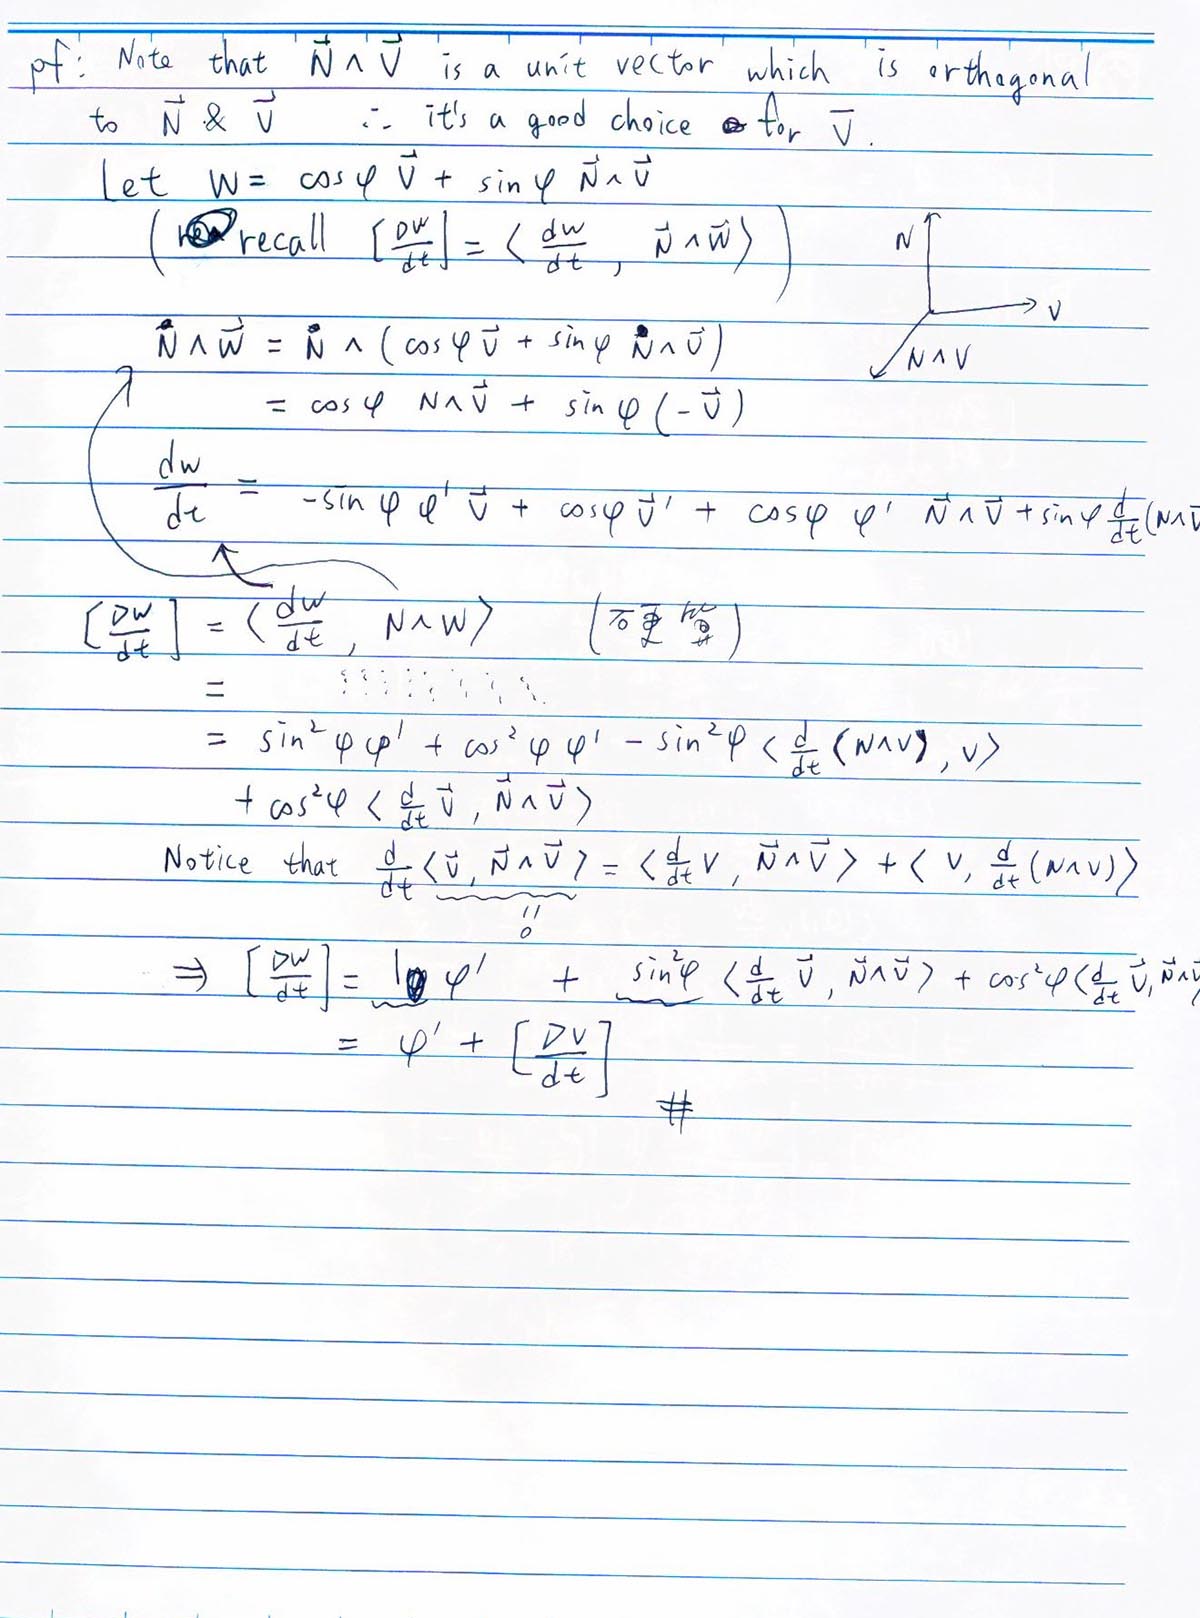 pf: Note that N⃗ ∧ V⃗ is a unit vector which is orthogonal
to N⃗ & V⃗ ∴ it's a good choice for V̄.
Let W = cosφ V⃗ + sinφ N⃗∧V⃗
(recall [DW/dt] = ⟨dw/dt, N⃗∧W⃗⟩)
N
V
N∧V
N⃗∧W⃗ = N⃗ ∧ (cosφ V⃗ + sinφ N⃗∧V⃗)
= cosφ N∧V⃗ + sinφ(-V⃗)
dw/dt = -sinφ φ' V⃗ + cosφ V⃗' + cosφ φ' N⃗∧V⃗ + sinφ d/dt(N∧V
[DW/dt] = ⟨dw/dt, N∧W⟩
=
= sin²φφ' + cos²φφ' - sin²φ⟨d/dt(N∧V), V⟩
+ cos²φ⟨d/dt V⃗, N⃗∧V⃗⟩
Notice that d/dt⟨V⃗, N⃗∧V⃗⟩ = ⟨d/dt V, N⃗∧V⃗⟩ + ⟨V, d/dt(N∧V)⟩
"
0
⇒ [DW/dt] = φ' + sin²φ⟨d/dt V⃗, N⃗∧V⃗⟩ + cos²φ⟨d/dt V⃗, N⃗∧V
= φ' + [DV/dt]
#